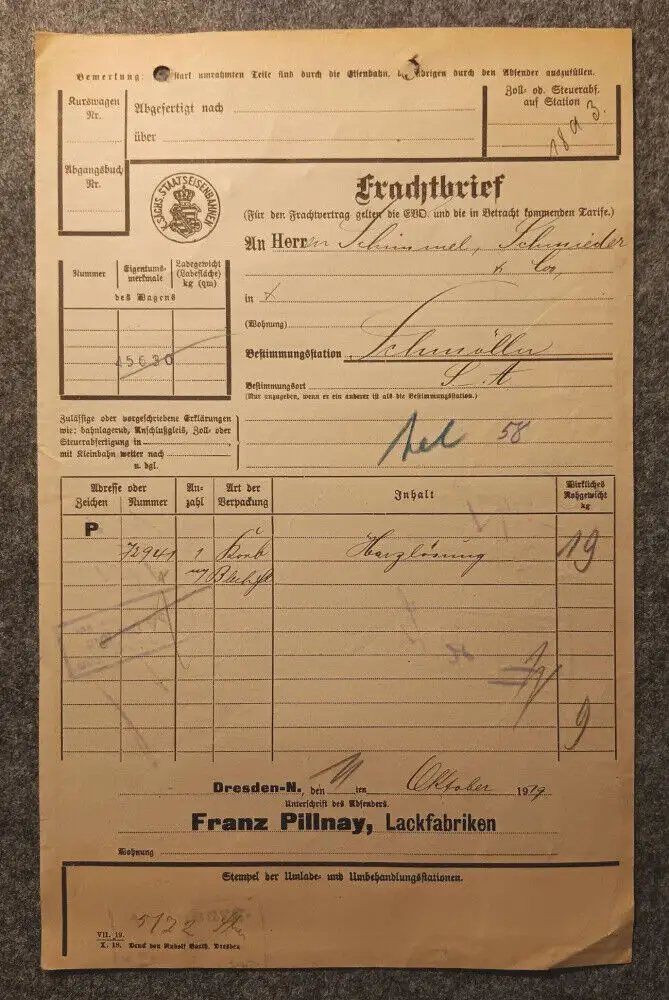 Bemertung: start umrahmten Teile sind durch die Eisenbahn, übrigen durch den Absender auszufüllen.
Kurswagen Nr.
Abgefertigt nach
über
Zoll- od. Steuerabf. auf Station
Abgangsbuch Nr.
K. SÄCHS. STAATSEISENBAHNEN
Frachtbrief
(Für den Frachtvertrag gelten die EVO. und die in Betracht kommenden Tarife.)
An Herren Schimmel, Schmieder
& Co,
Nummer Eigentumsmerkmale Ladegewicht (Ladefläche) kg (qm)
des Wagens
45630
in
(Wohnung)
Bestimmungsstation Schmölln
Bestimmungsort S-A
(Nur anzugeben, wenn er ein anderer ist als die Bestimmungsstation.)
Zulässige oder vorgeschriebene Erklärungen
wie: bahnlagernd, Anschlußgleis, Zoll- oder
Steuerabfertigung in
mit Kleinbahn weiter nach
u. dgl.
58
Adresse oder Zeichen Nummer Anzahl Art der Verpackung Inhalt Wirkliches Rohgewicht kg
P
72941 1 Korb Harzlösung 19
9
Dresden-N., den 11 ten Oktober 1919
Unterschrift des Absenders.
Franz Pillnay, Lackfabriken
Wohnung
Stempel der Umlade- und Umbehandlungsstationen.
5122
VII. 19.
X. 18. Druck von Rudolf Barth, Dresden